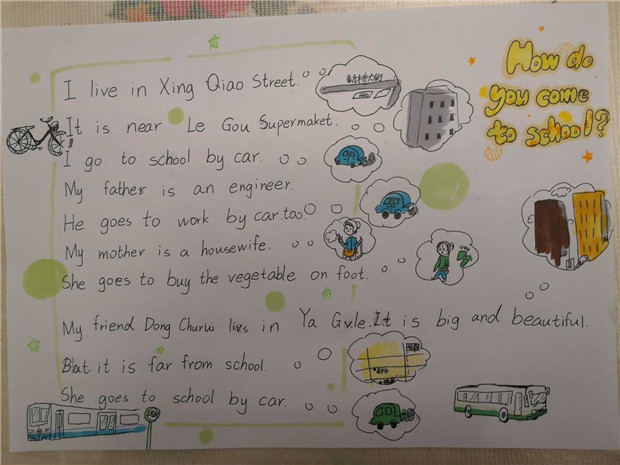 How do
you come
to school?
I live in Xing Qiao Street.
It is near Le Gou Supermaket.
I go to school by car.
My father is an engineer.
He goes to work by car.too.
My mother is a housewife.
She goes to buy the vegetable on foot.
My friend Dong Churui livs in Ya Gvle.It is big and beautiful.
But it is far from school.
She goes to school by car.